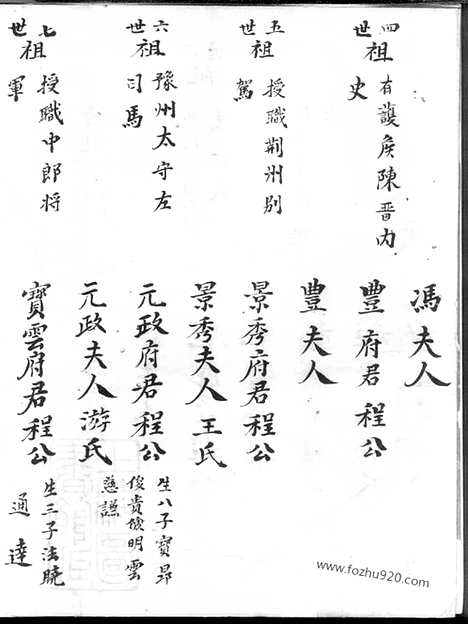 馮夫人
四世祖
有護侯陳晋内
史
豐府君程公
豐夫人
五世祖
授職荆州别
駕
景秀府君程公
景秀夫人王氏
六世祖
豫州太守左
司馬
元政府君程公
生八子寳昂
俊貴儉明雲
慈謙
元政夫人游氏
七世祖
授職中郎将
軍
寳雲府君程公
生三子法曉
通達
www.fozhu920.com